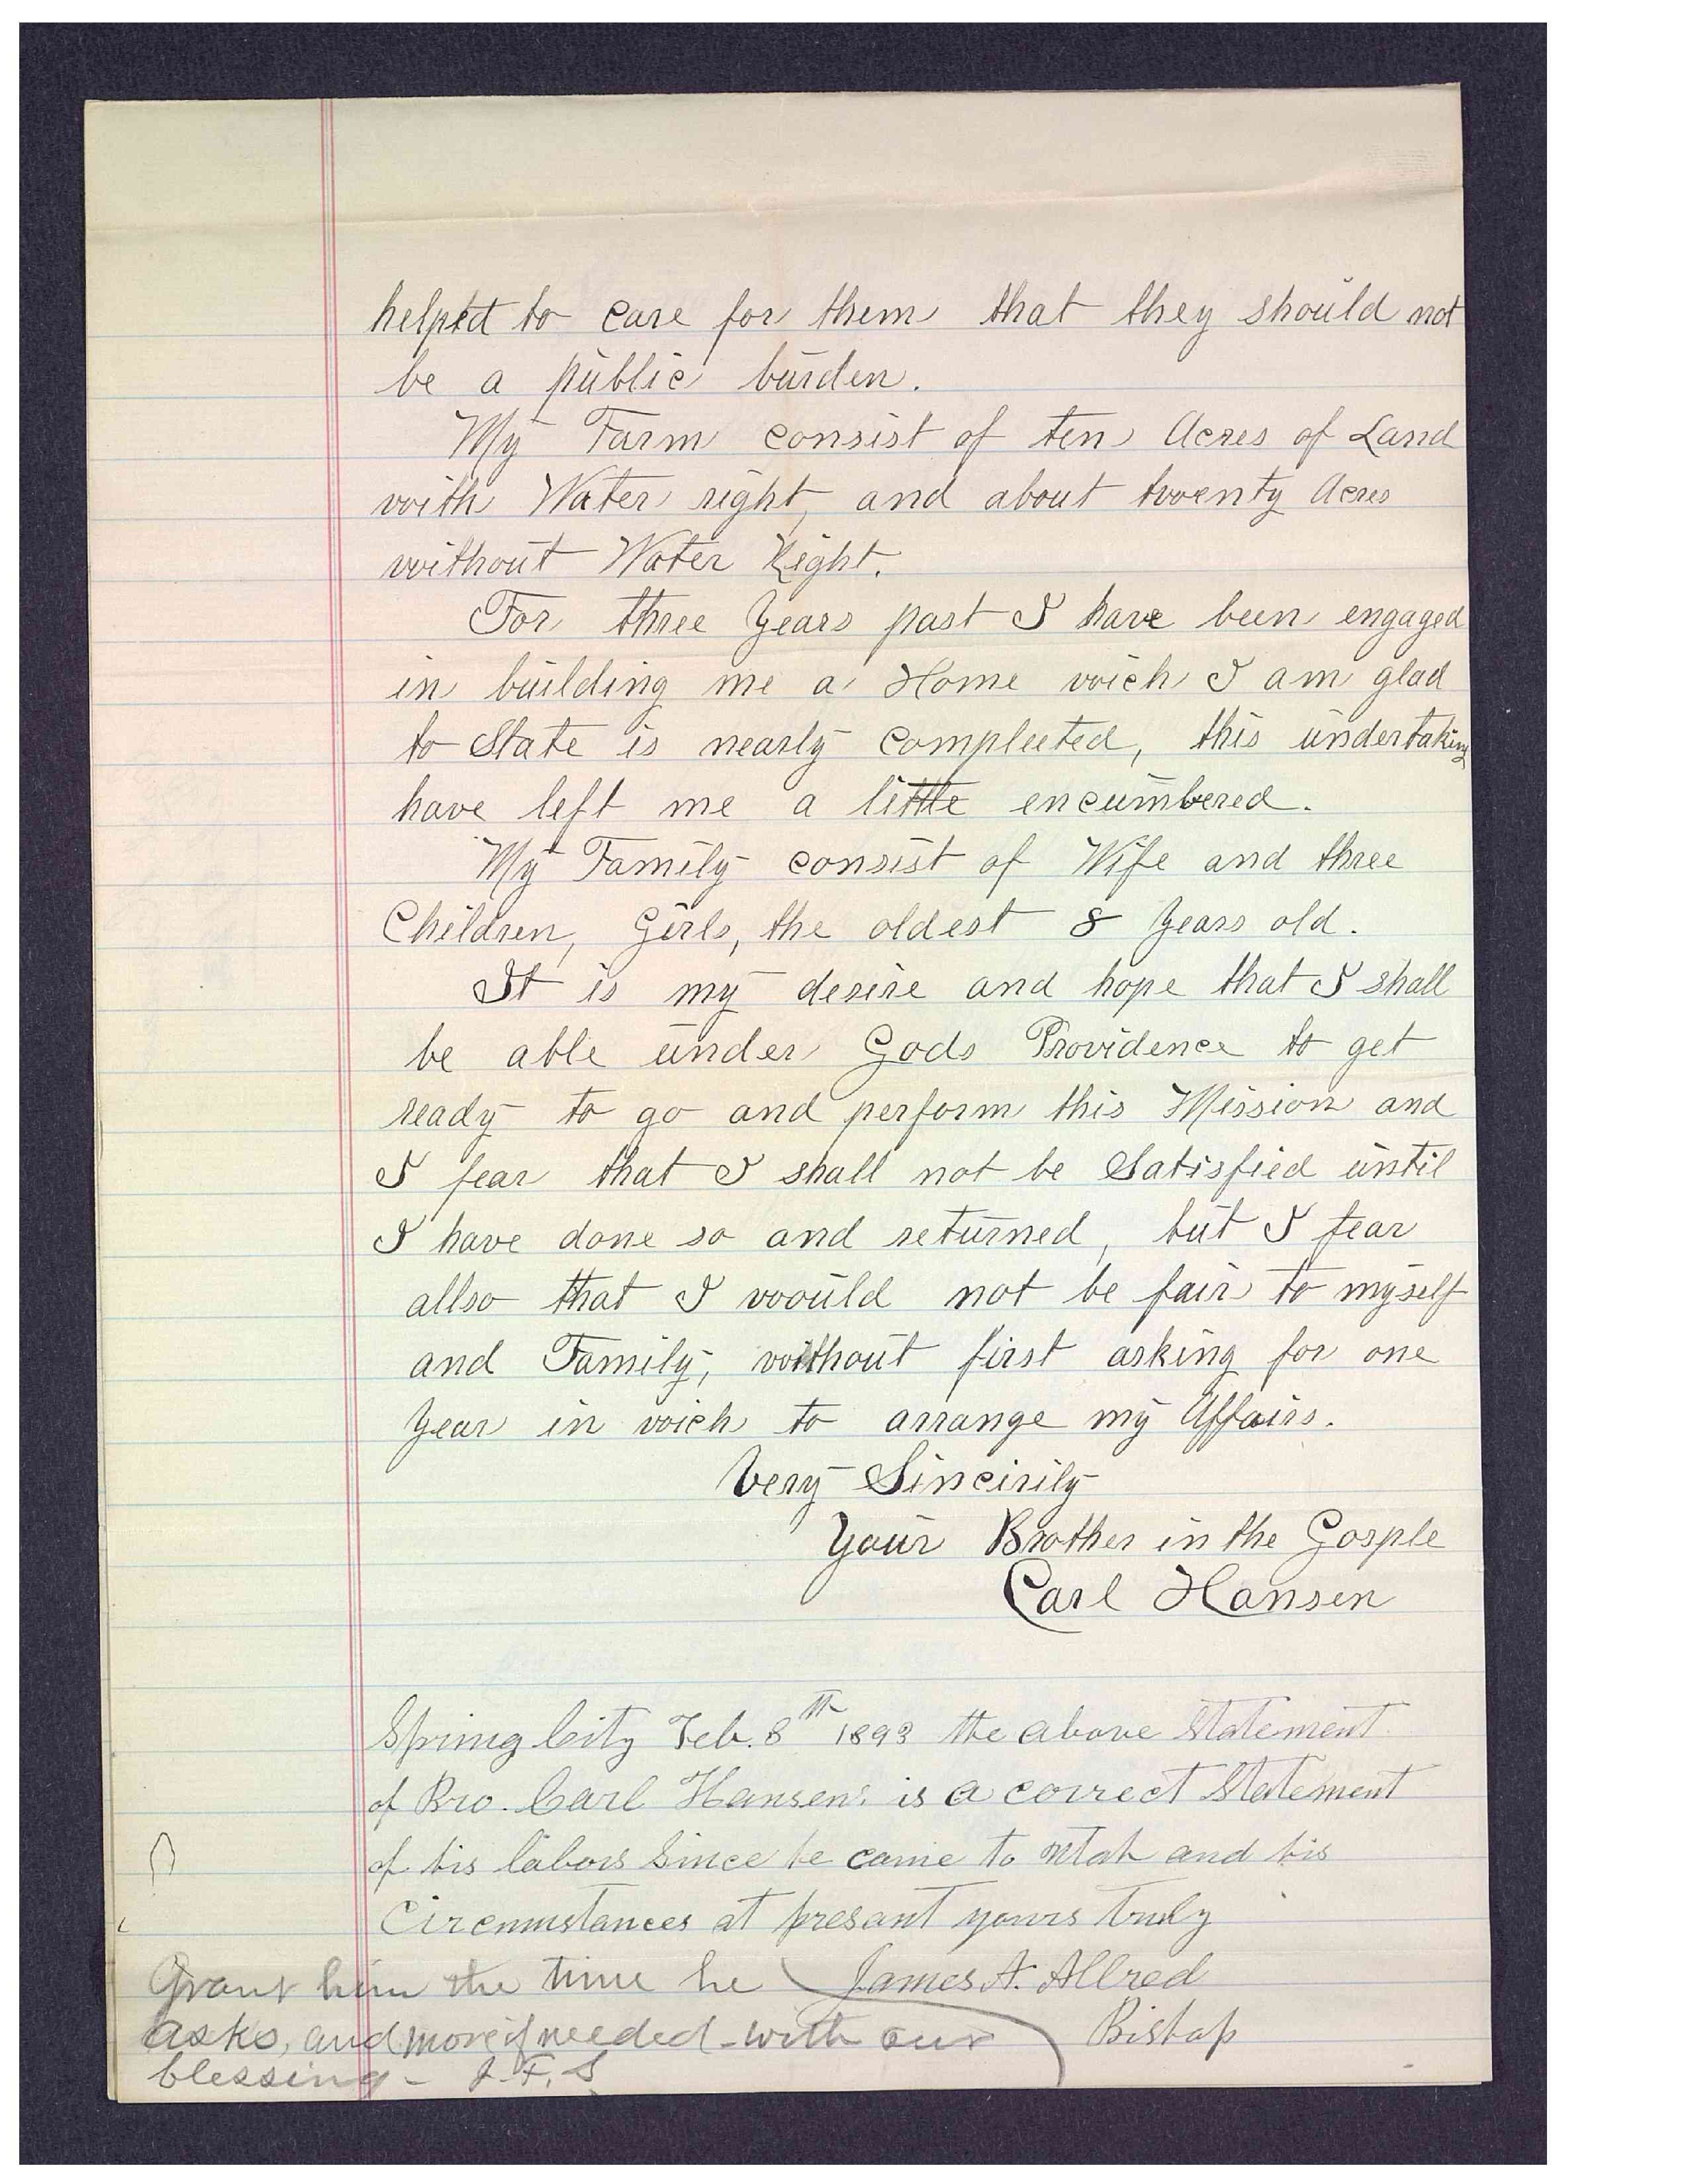 helped to care for them that they should not
be a public burden.
My Farm consist of ten Acres of Land
with Water right, and about twenty Acres
without Water Right.
For three Years past I have been engaged
in building me a Home wich I am glad
to State is nearly compleeted, this undertaking
have left me a little encumbered.
My Family consist of Wife and three
Children, Girls, the oldest 8 Years old.
It is my desire and hope that I shall
be able under Gods Providence to get
ready to go and perform this Mission and
I fear that I shall not be Satisfied until
I have done so and returned, but I fear
allso that I would not be fair to myself
and Family, without first asking for one
Year in wich to arrange my Affairs.
Very Sincirily
Your Brother in the Gosple
Carl Hansen
Spring City Feb. 8th 1893 the above Statement
of Bro. Carl Hansen is a correct Statement
of his labors Since he came to Utah and his
Circumstances at presant yours truly
James A. Allred
Bishop
Grant him the time he
asks, and more if needed - with our
blessing - J. F. S